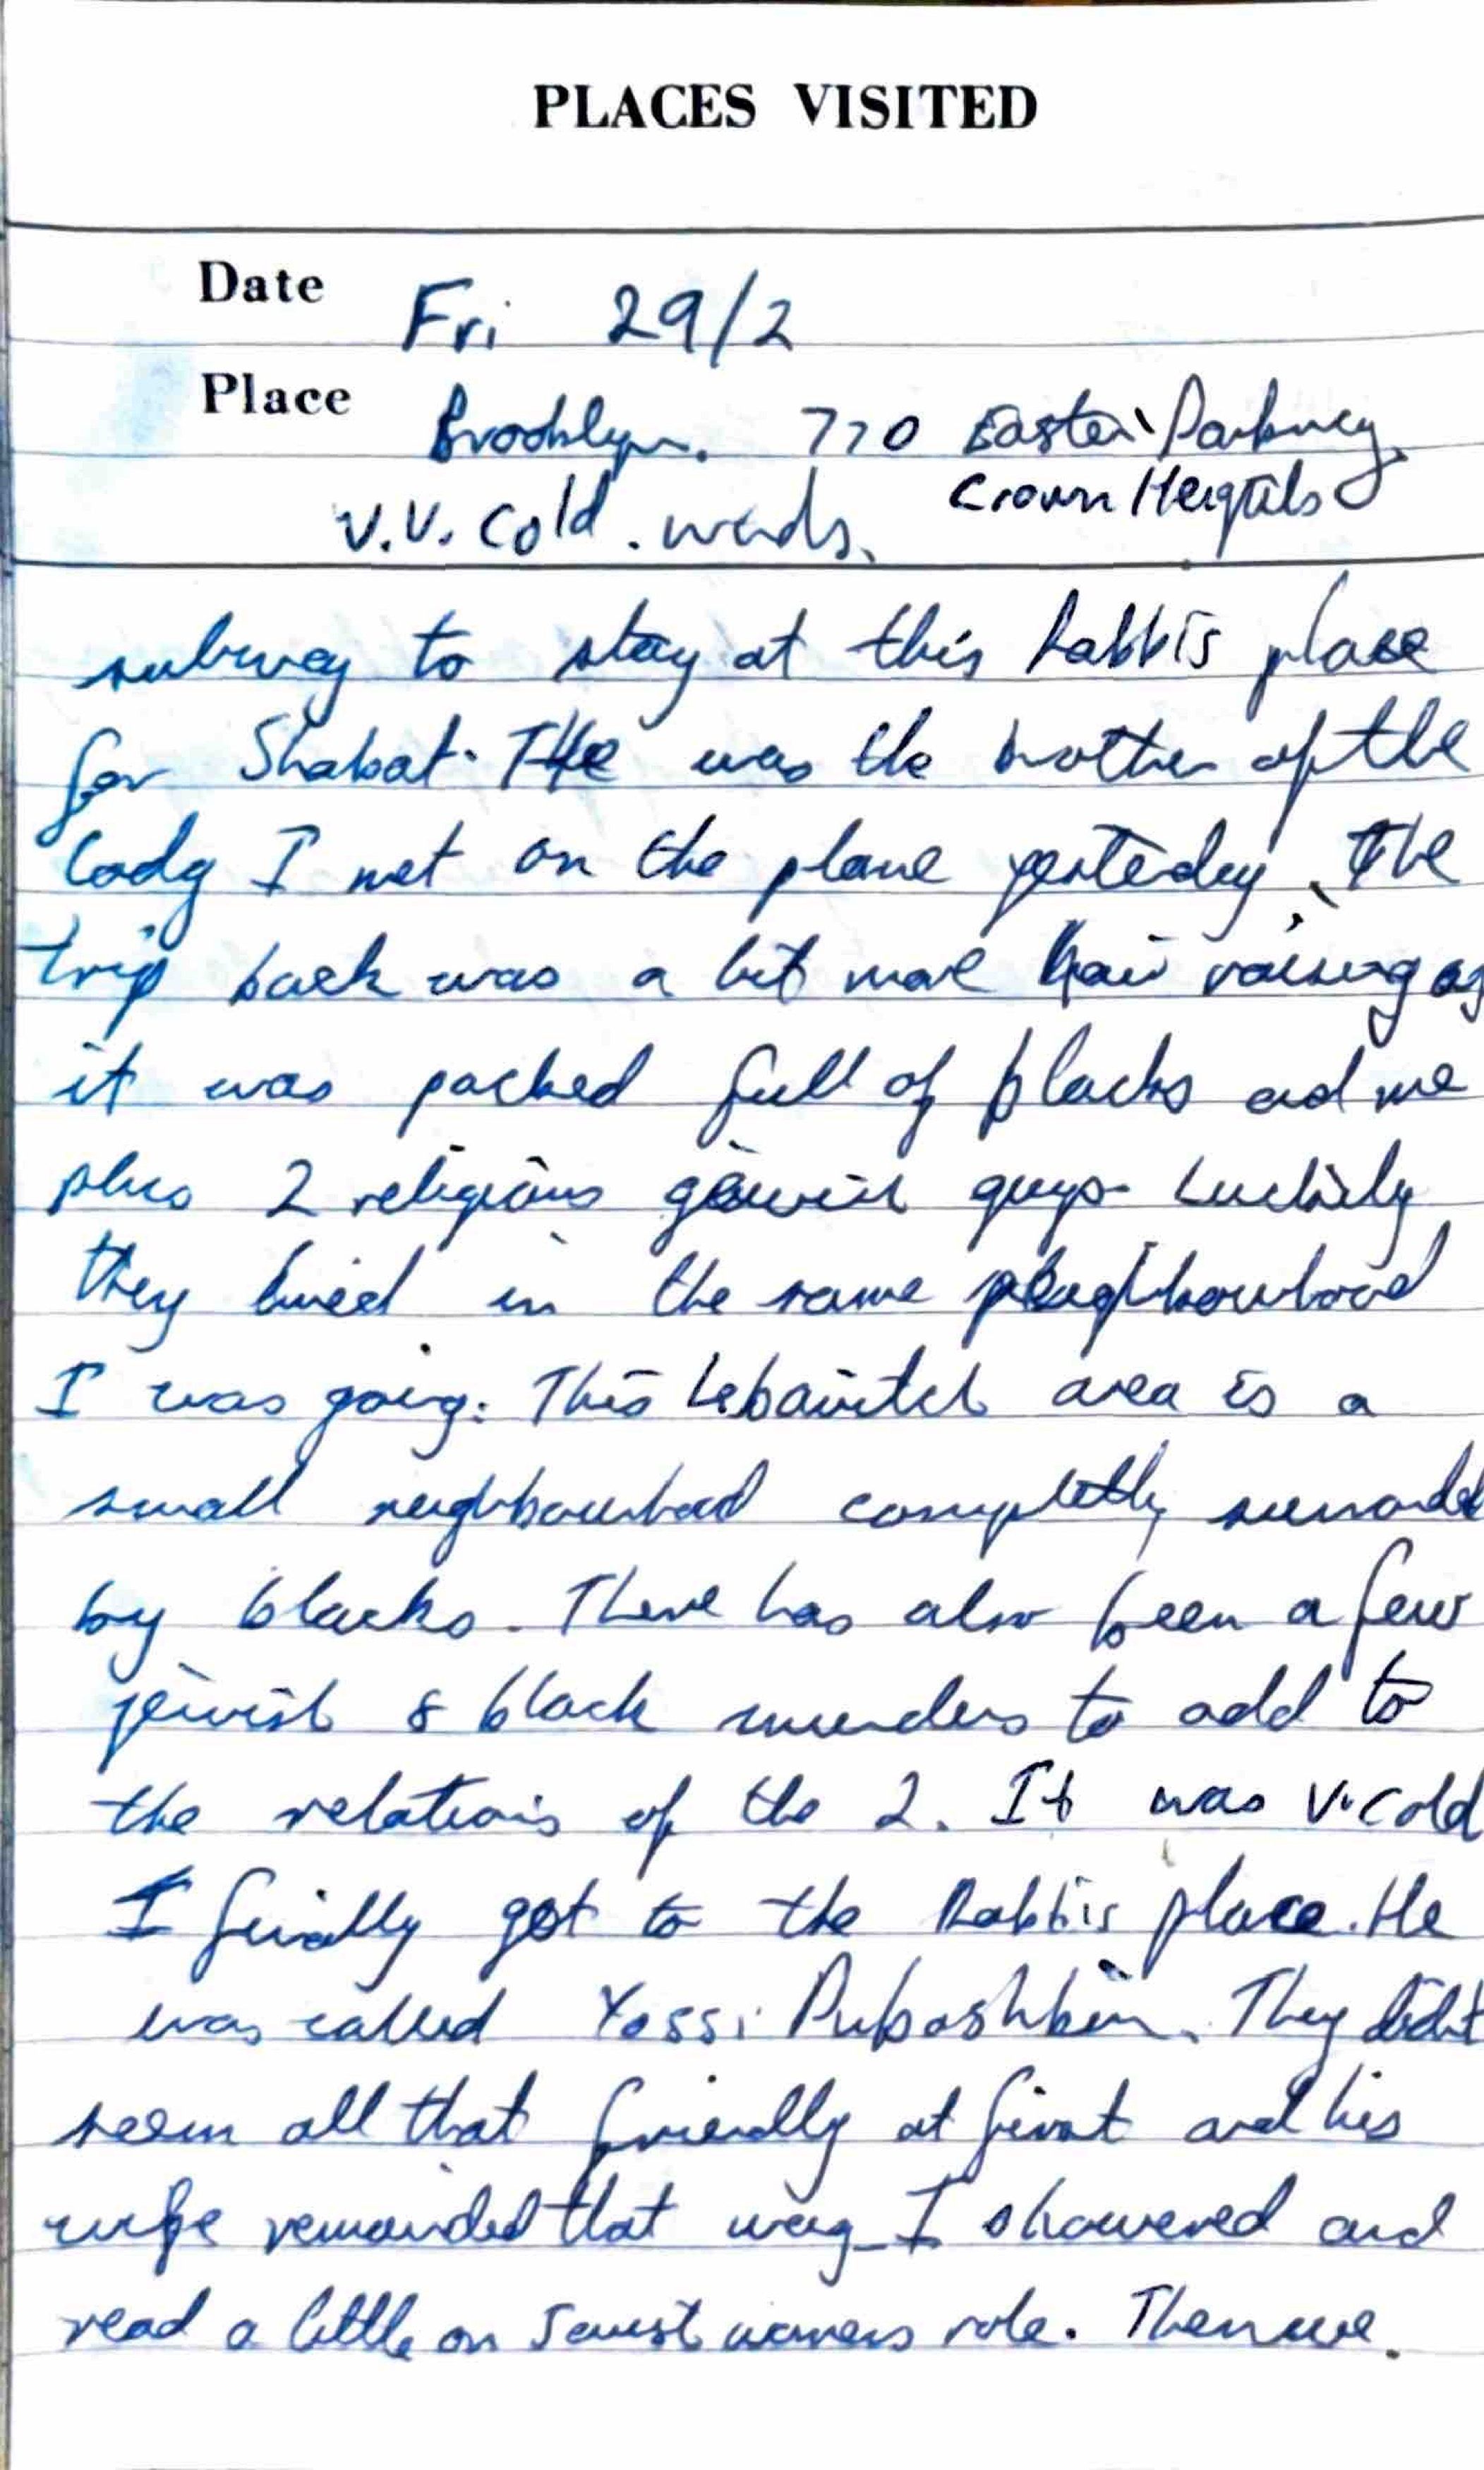 PLACES VISITED
Date Fri 29/2
Place Brooklyn. 770 Eastern Parkway,
Crown Heights
V.V. Cold. winds.
subway to stay at this Rabbis place
for Shabat. He was the brother of the
lady I met on the plane yesterday, the
trip back was a bit more hair raising as
it was packed full of blacks and me
plus 2 religious jewish guys. Luckily
they lived in the same neighbourhood
I was going. This Lebavitch area is a
small neighbourhood completly surrounded
by blacks. There has also been a few
jewish & black murders to add to
the relations of the 2. It was v. cold
I finally got to the Rabbis place. He
was called Yossi. They didn't
seem all that friendly at first and his
wife remainded that way. I showered and
read a little on Jewish womens role. Then we.